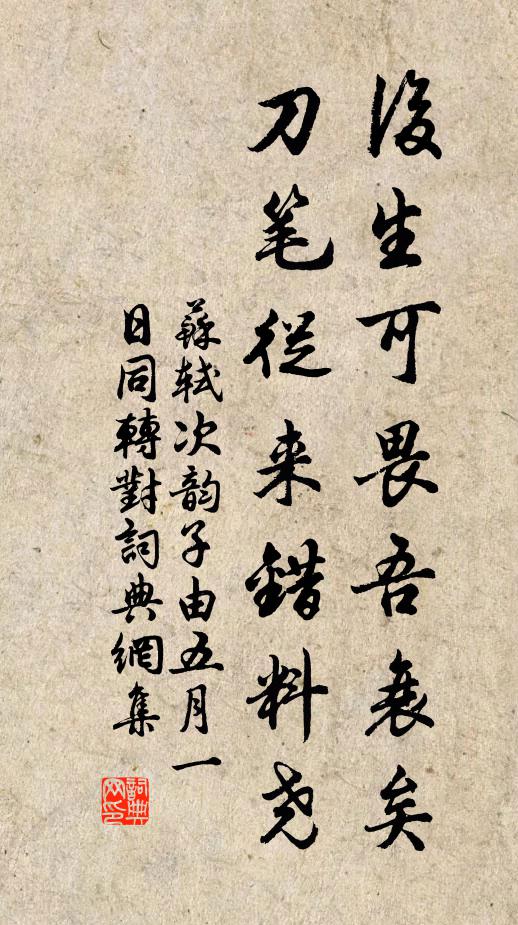 後生可畏吾衰矣
刀笔從来錯料尧
蘇軾次韵子由五月一
日同轉對詞典網集
詞典
网印